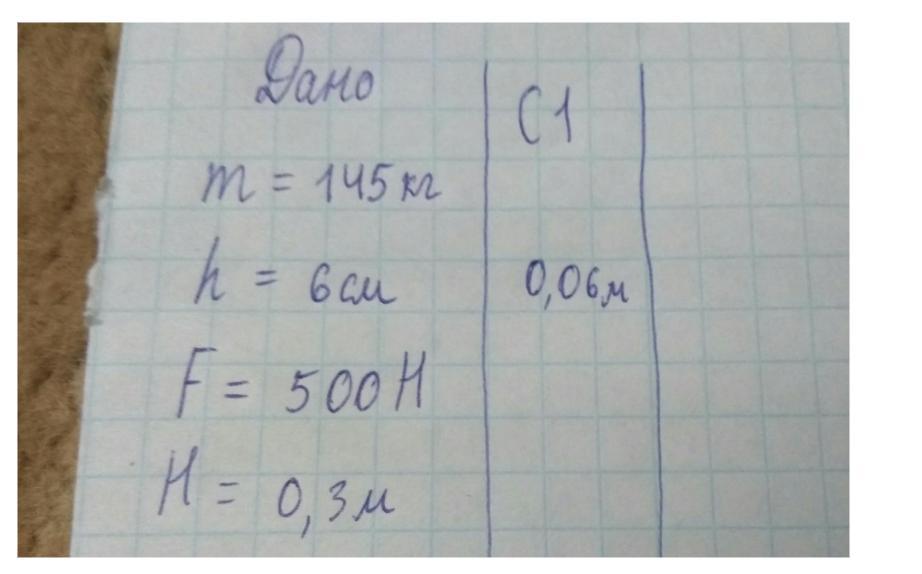 Дано
СИ
m = 145 кг
h = 6 см
0,06 м
F = 500 Н
H = 0,3 м